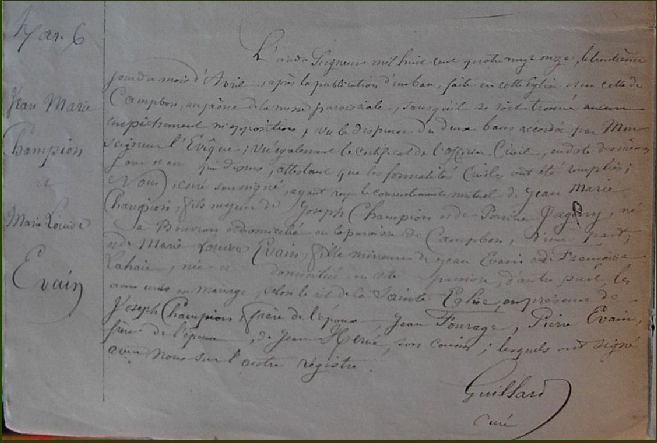 Mar. 6
Jean Marie
Champion
et
Marie Louise
Evain
L'an du Seigneur mil huit cent quatre vingt onze, le
jour du mois d'Avril, après la publication d'un ban, faite en cette Eglise et en celle de
Campbon, au prône de la messe paroissiale, sans qu'il se soit trouvé aucun
empêchement ni opposition; vu la dispense de deux bans accordée par Mon
seigneur l'Evêque; vu également le certificat de l'officier Civil, en date du
jour et an que dessus, attestant que les formalités Civiles ont été remplies;
Nous, curé soussigné, ayant reçu le consentement mutuel de Jean Marie
Champion, fils majeur de Joseph Champion et de né
à Bouvron et domicilié en la paroisse de Campbon, d'une part;
et de Marie Louise Evain, fille mineure de Jean Evain et de Françoise
Lahaie, née et domiciliée en cette paroisse, d'autre part, les
avons unis en mariage, selon le rit de la Sainte Eglise, en présence de
Joseph Champion, frère de l'époux, Jean Fourage, Pierre Evain,
frère de l'épouse, de Jean son cousin; lesquels ont signé
avec Nous sur l'autre registre.
Guillard
curé